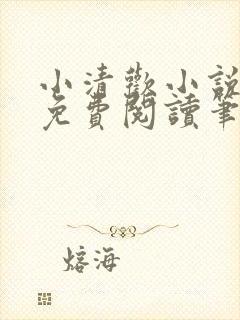 小清歡小說
免費閱讀筆
熔海